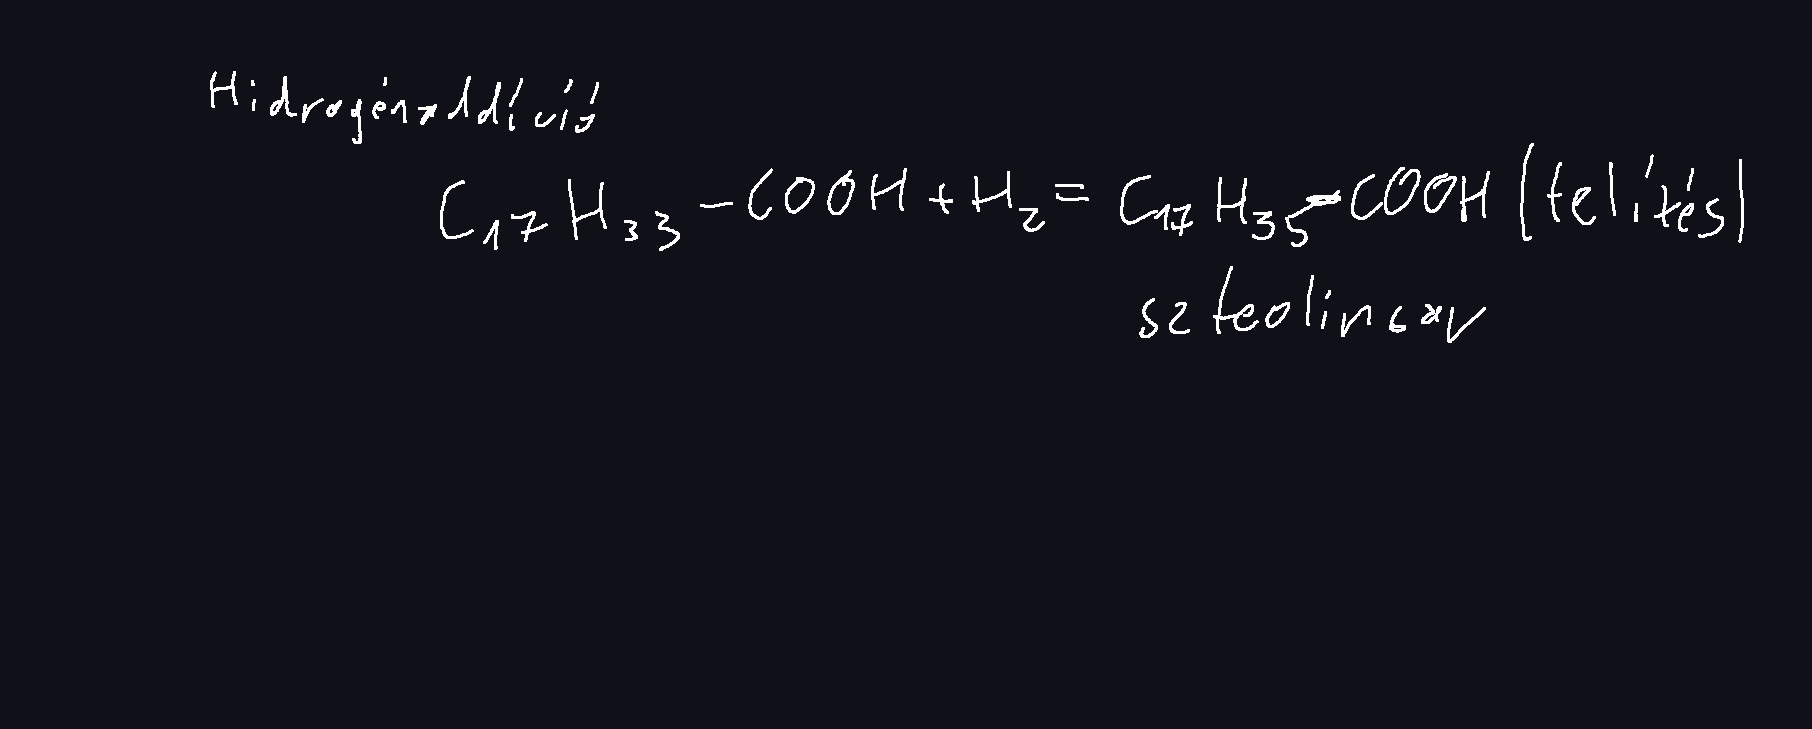 Hidrogénaddíció
C₁₇H₃₃-COOH+H₂=C₁₇H₃₅-COOH (telítés)
szteolinsav